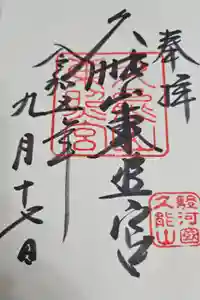 奉拝
久能山東照宮
令和五年
九月十七日
駿河國
久能山